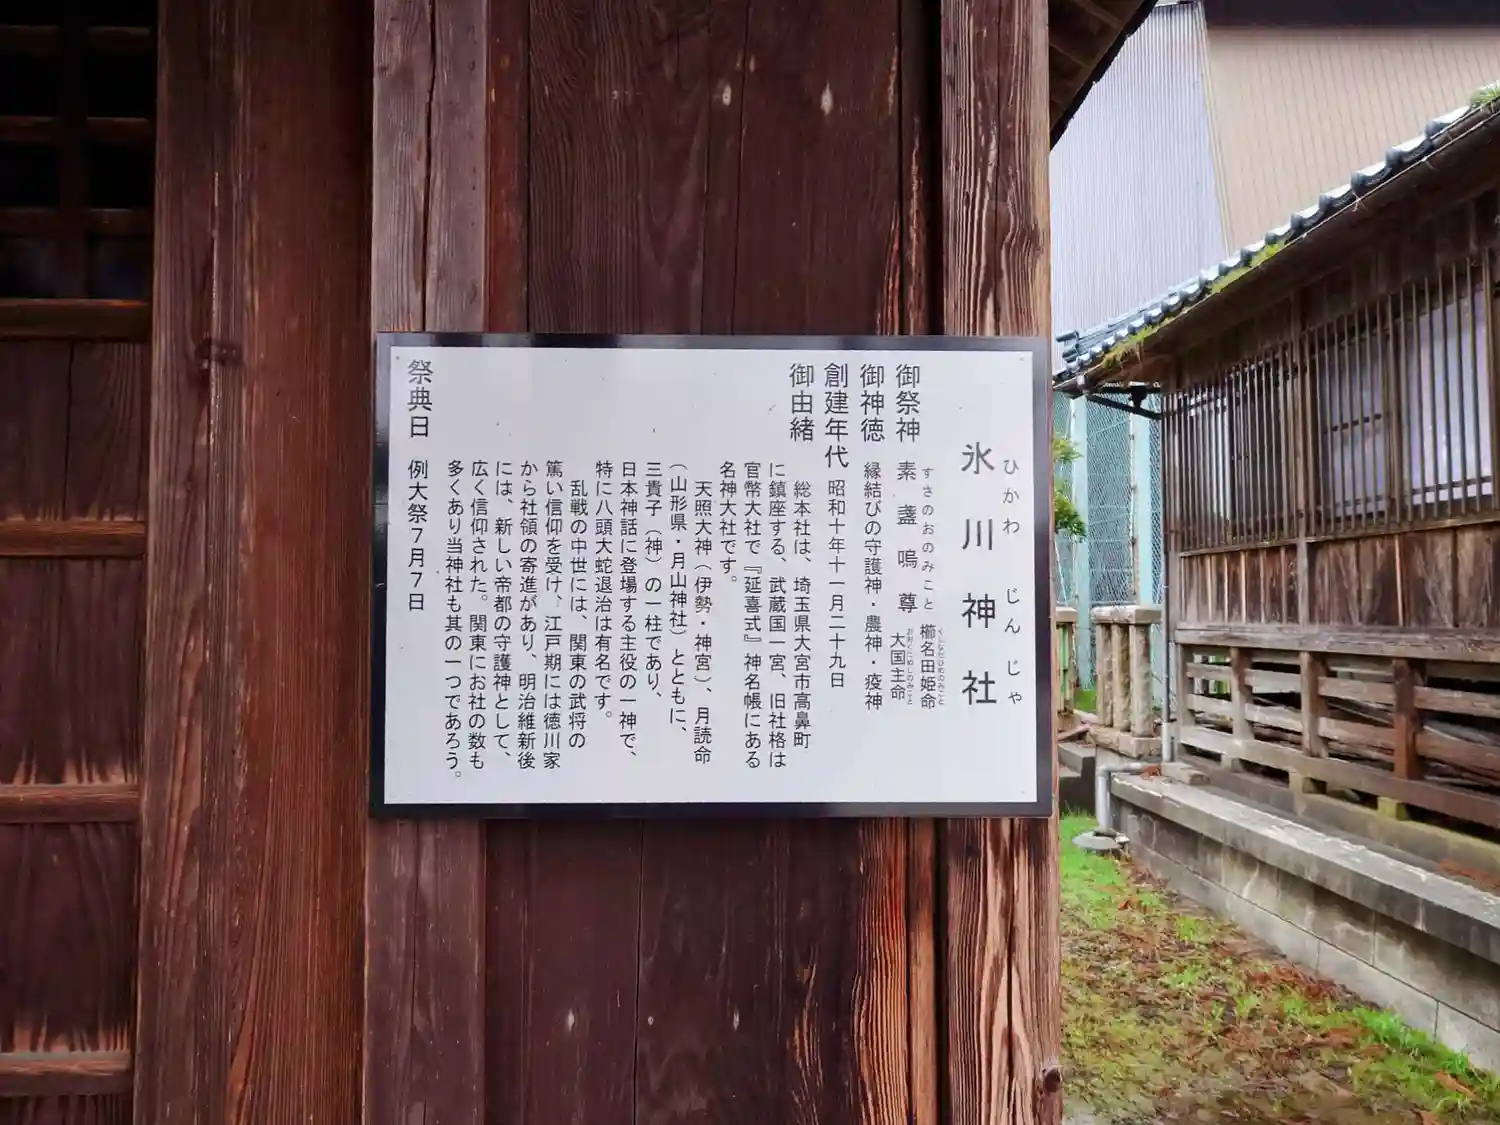 ひかわ じんじゃ
氷川神社
御祭神 素盞嗚尊 櫛名田姫命 大国主命
すさのおのみこと
くしなだひめのみこと
おおくにぬしのみこと
御神徳 縁結びの守護神・農神・疫神
創建年代 昭和十年十一月二十九日
御由緒 総本社は、埼玉県大宮市高鼻町
に鎮座する、武蔵国一宮、旧社格は
官幣大社で『延喜式』神名帳にある
名神大社です。
天照大神（伊勢・神宮）、月読命
（山形県・月山神社）とともに、
三貴子（神）の一柱であり、
日本神話に登場する主役の一神で、
特に八頭大蛇退治は有名です。
乱戦の中世には、関東の武将の
篤い信仰を受け、江戸期には徳川家
から社領の寄進があり、明治維新後
には、新しい帝都の守護神として、
広く信仰された。関東にお社の数も
多くあり当神社も其の一つであろう。
祭典日 例大祭７月７日